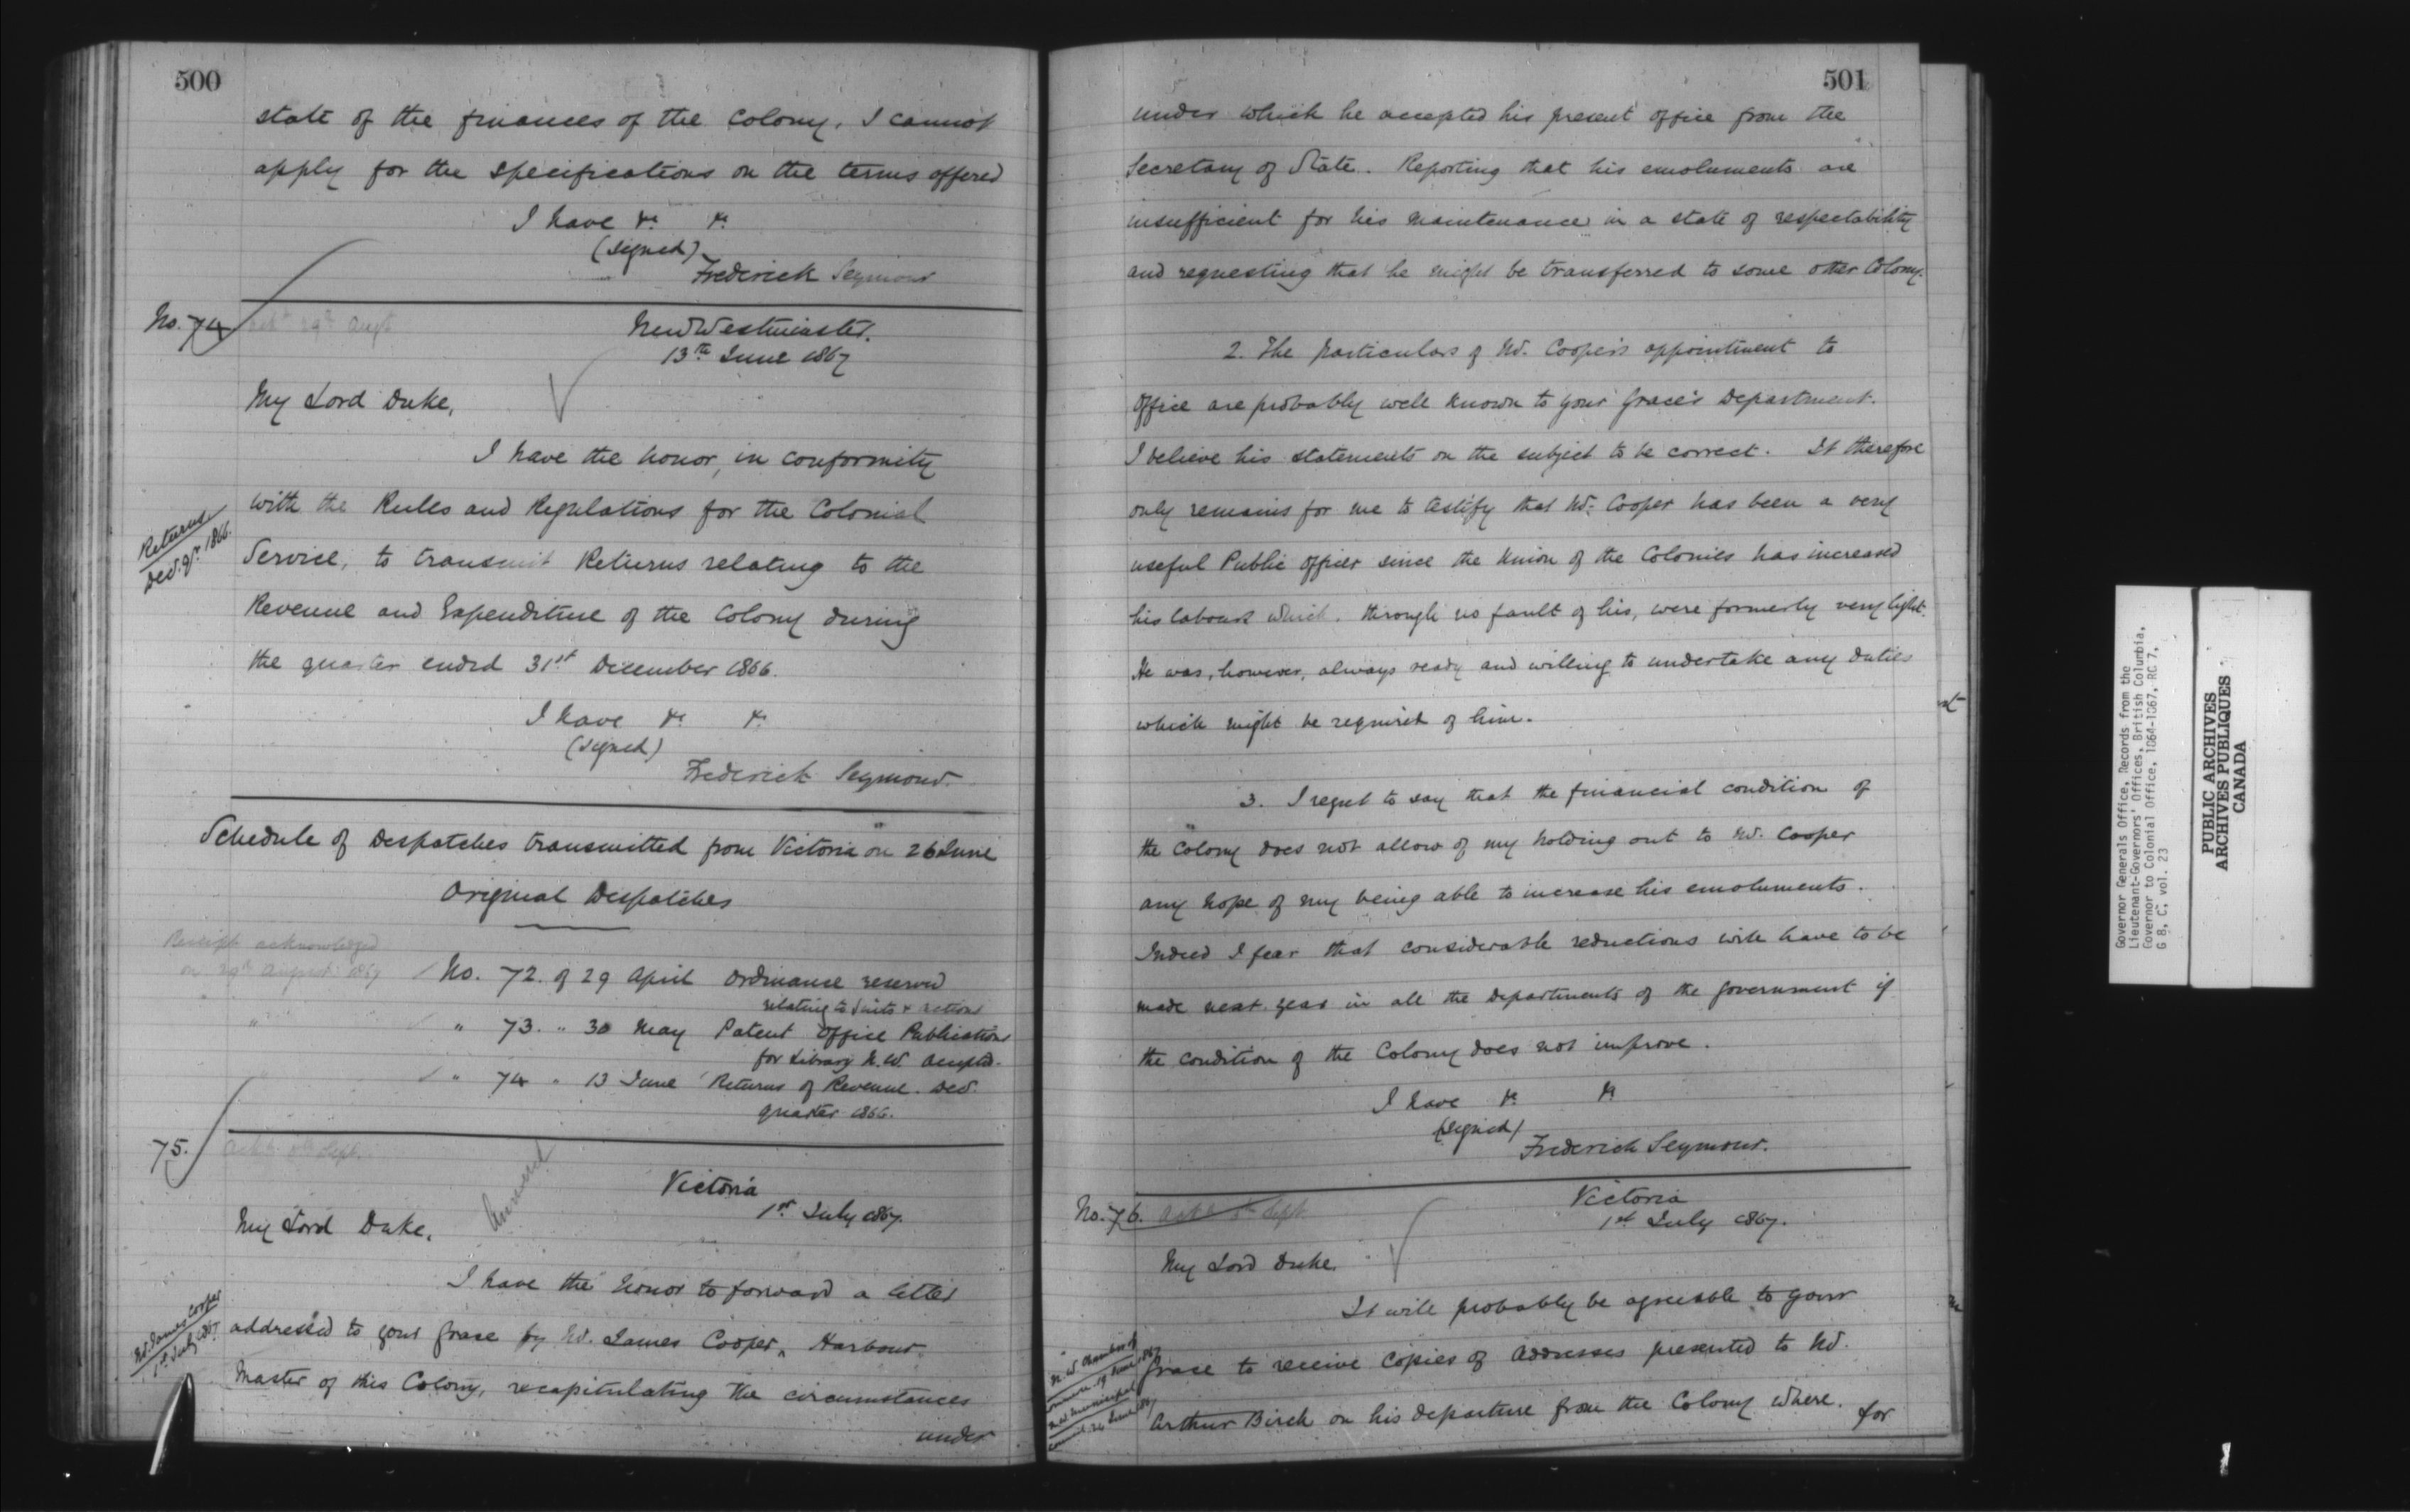 500
state of the finances of the Colony, I cannot
apply for the specifications on the terms offered
I have &c &c
(signed)
Frederick Seymour
No. 74
ackd 29th Augt
New Westminster.
13th June 1867
My Lord Duke,
I have the honor, in conformity
with the Rules and Regulations for the Colonial
Returns
Decr. qr. 1866.
Service, to transmit Returns relating to the
Revenue and Expenditure of the Colony during
the quarter ended 31st December 1866.
I have &c &c
(signed)
Frederick Seymour.
Schedule of Despatches transmitted from Victoria on 26 June
Original Despatches
Receipt acknowledged
on 29th August 1867
No. 72. of 29 April Ordinance reserved
relating to Suits & actions
" " 73. " 30 May Patent Office Publications
for Library N.W. accepted.
" 74 " 13 June Returns of Revenue. Decr.
quarter 1866.
75.
ackd Sept.
Answered
Victoria
1st July 1867.
My Lord Duke,
I have the honor to forward a letter
Mr. James Cooper
1st July 1867
addressed to your Grace by Mr. James Cooper, Harbour
Master of this Colony, recapitulating the circumstances
under
501
under which he accepted his present office from the
Secretary of State. Reporting that his emoluments are
insufficient for his maintenance in a state of respectability
and requesting that he might be transferred to some other Colony.
2. The particulars of Mr. Cooper's appointment to
office are probably well known to your Grace's Department.
I believe his statements on the subject to be correct. It therefore
only remains for me to testify that Mr. Cooper has been a very
useful Public officer since the Union of the Colonies has increased
his labours which, through no fault of his, were formerly very light.
He was, however, always ready and willing to undertake any duties
which might be required of him.
3. I regret to say that the financial condition of
the Colony does not allow of my holding out to Mr. Cooper
any hope of my being able to increase his emoluments.
Indeed I fear that considerable reductions will have to be
made next year in all the Departments of the Government if
the condition of the Colony does not improve.
I have &c &c
(signed)
Frederick Seymour.
No. 76.
ackd Sept
Victoria
1st July 1867.
My Lord Duke,
It will probably be agreeable to your
N.W. Chamber of
Commerce 19 June 1867
N.W. Municipal
Council 24 June 1867
Grace to receive Copies of Addresses presented to Mr.
Arthur Birch on his departure from the Colony where. for
Governor Generals Office, Records from the
Lieutenant-Governors' Offices, British Columbia,
Governor to Colonial Office, 1864-1867, RG 7,
G 8, C, vol. 23
PUBLIC ARCHIVES
ARCHIVES PUBLIQUES
CANADA